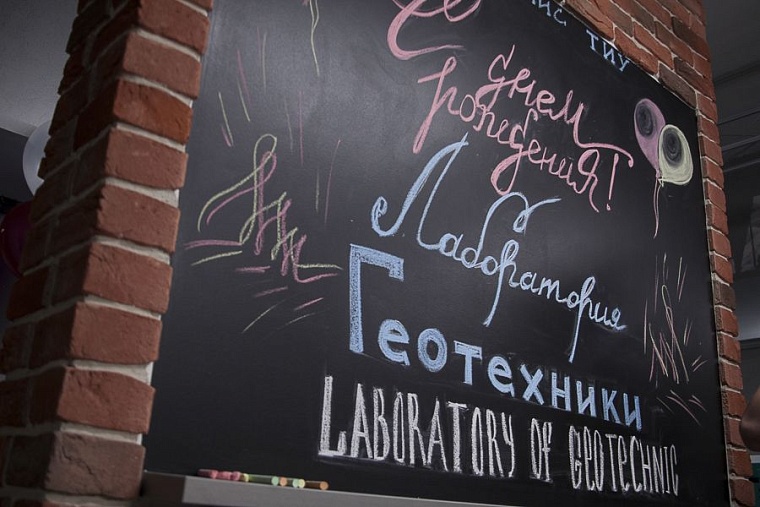 ТИУ
С днем
рождения!
Лаборатория
Геотехники
LABORATORY OF GEOTECHNIC